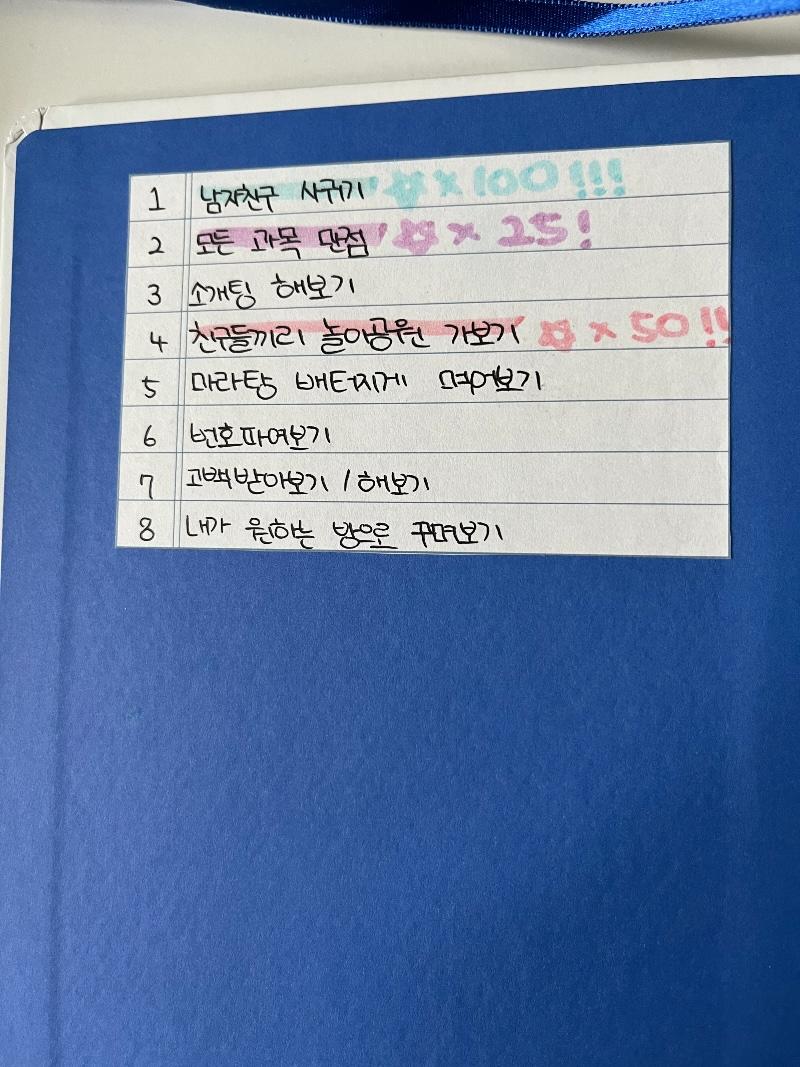 1 남자친구 사귀기 ☆ × 100 !!!
2 모든 과목 만점 ☆ × 25 !
3 소개팅 해보기
4 친구들끼리 놀이공원 가보기 ☆ × 50 !!
5 마라탕 배터지게 먹어보기
6 번호따여보기
7 고백받아보기 / 해보기
8 내가 원하는 방으로 꾸며보기